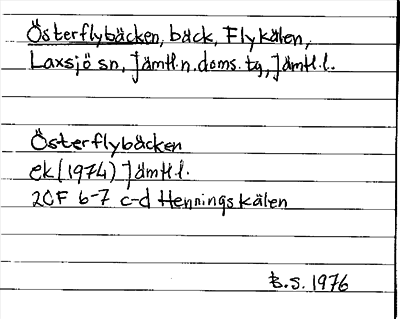 Österflybäcken, bäck, Flykälen,
Laxsjö sn, Jämtl.n.doms.tg, Jämtl.l.
Österflybäcken
ek (1974) Jämtl.l.
20F 6-7 c-d Henningskälen
B.S. 1976